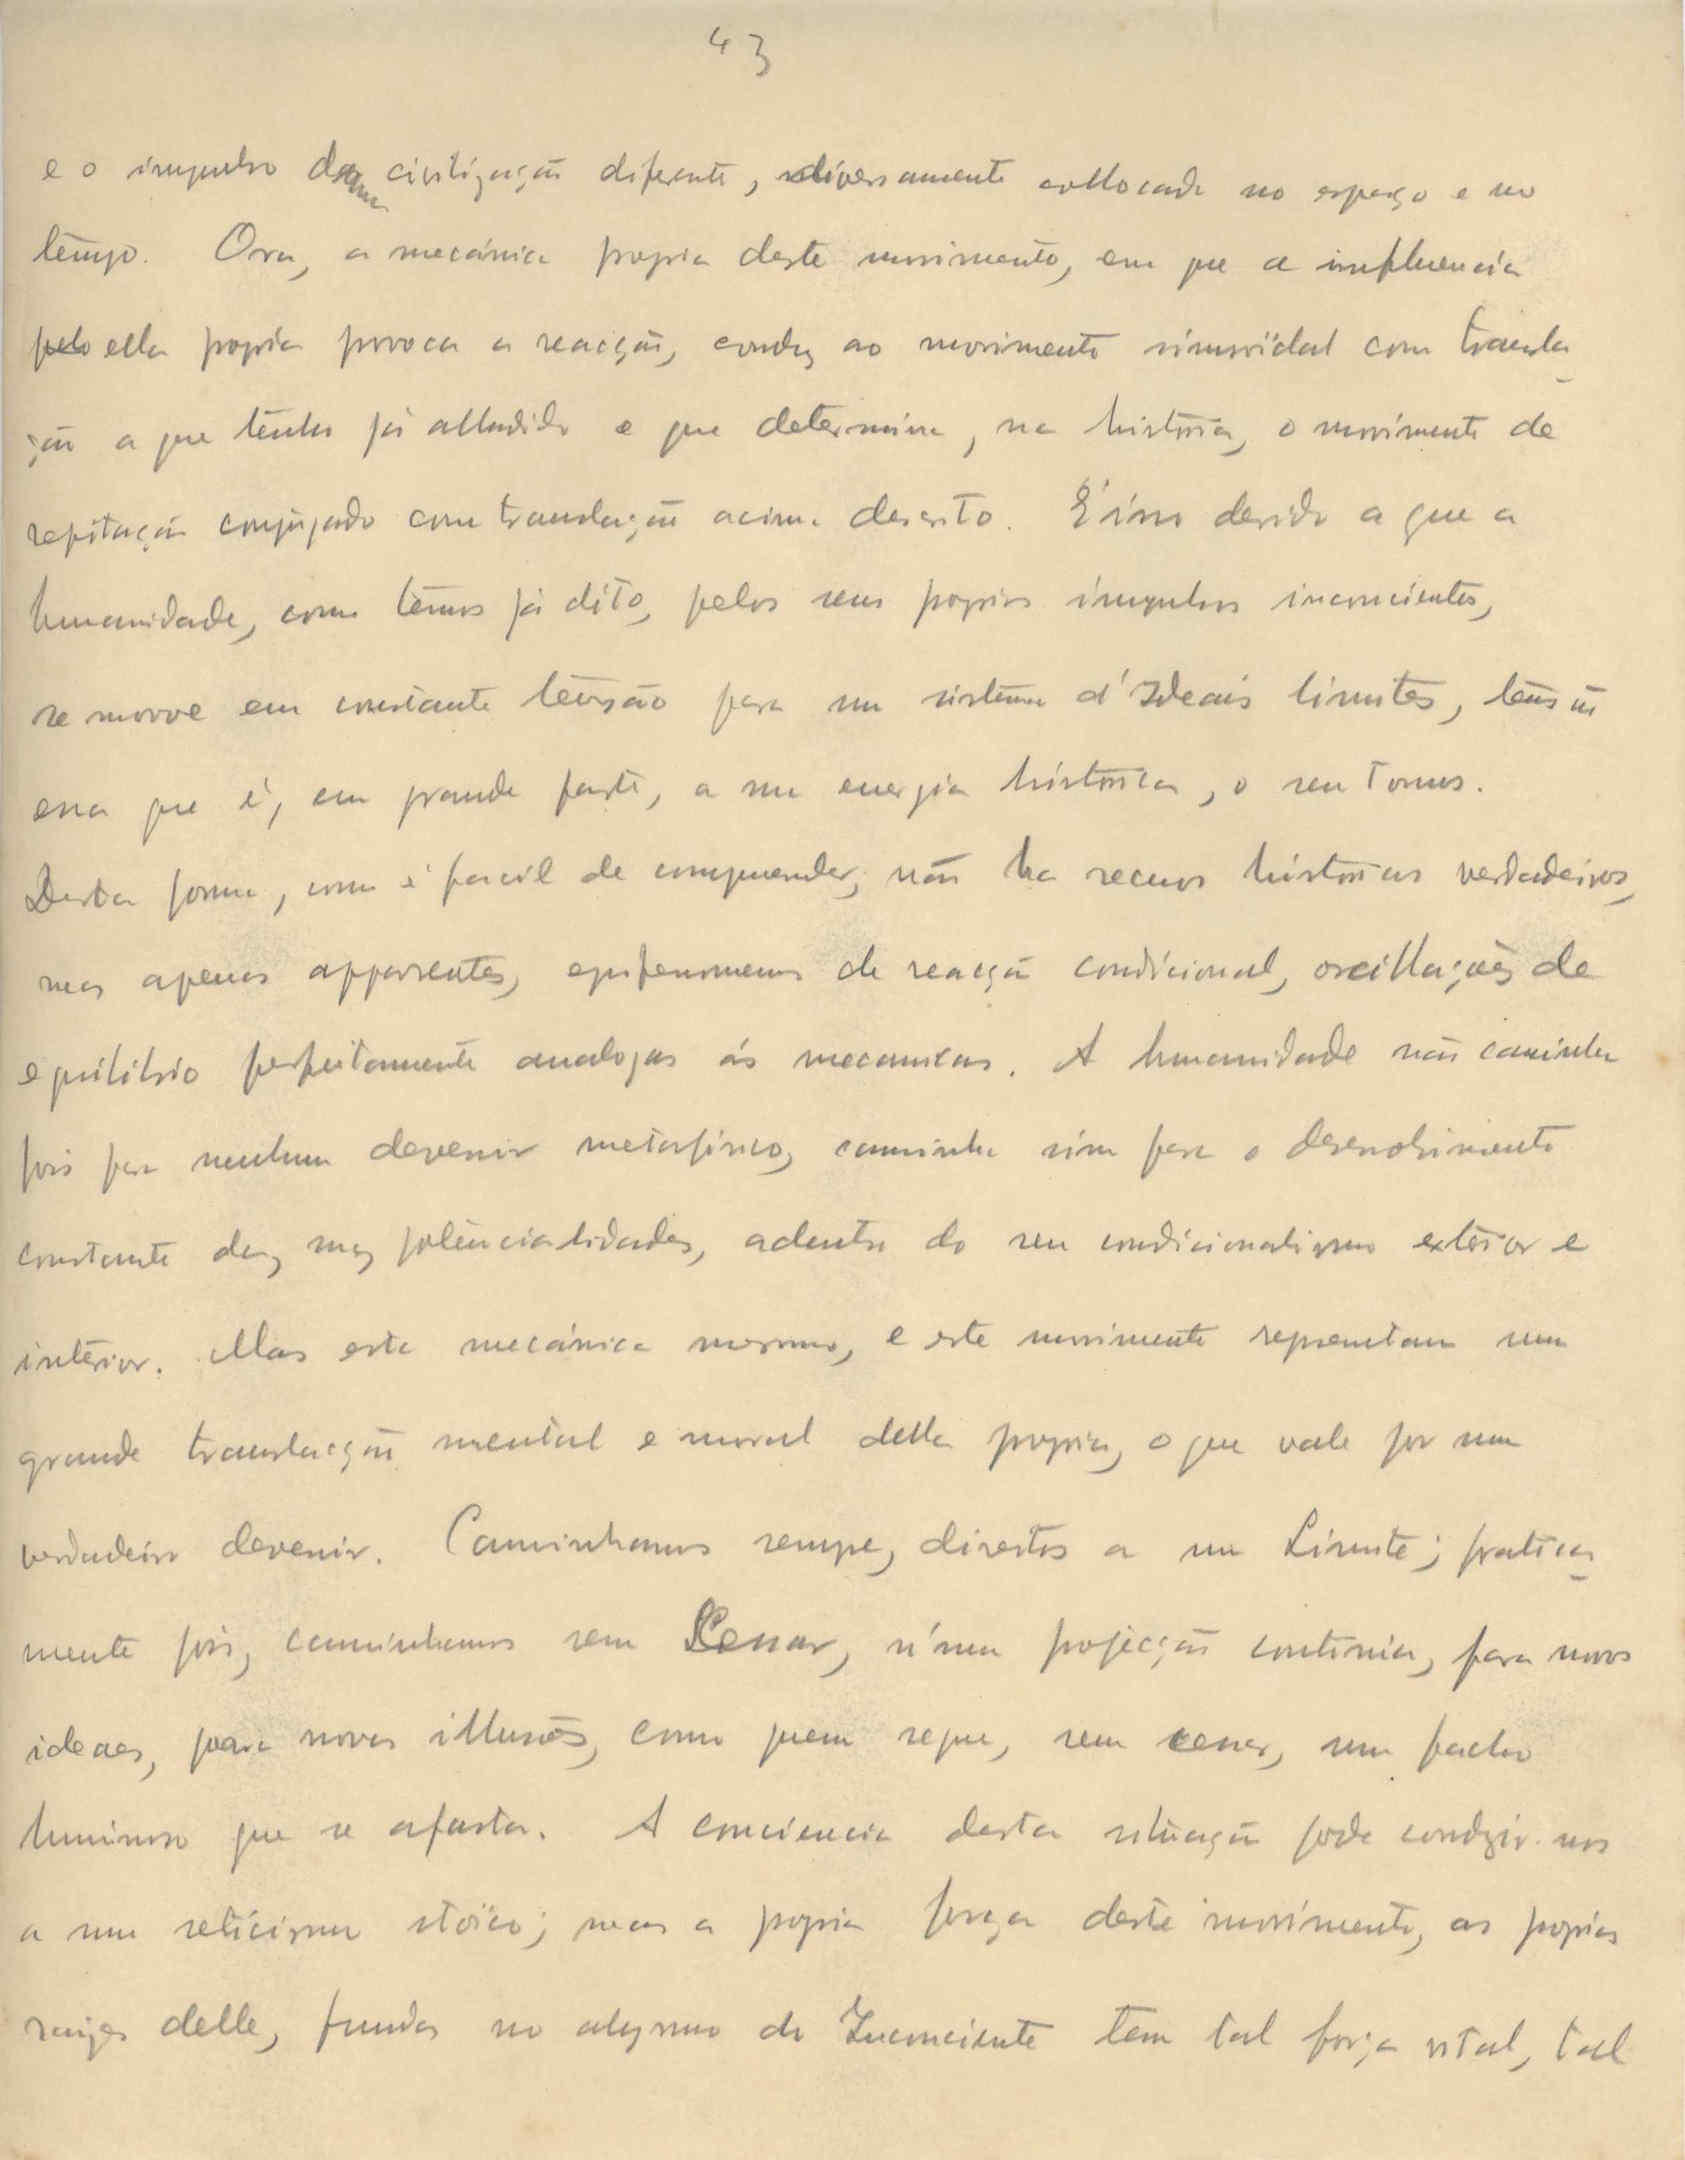 43
e o impulso duma civilização diferente, diversamente collocada no espaço e no
tempo. Ora, a mecánica propria deste movimento, em que a influencia
pelo ella propria provoca a reacção, conduz ao movimento sinusoïdal com transla-
ção a que tenho já alludido e que determina, na história, o movimento de
repitação conjugado com translação acima descrito. E isso devido a que a
humanidade, como temos já dito, pelos seus proprios impulsos inconscientes,
se move em constante tensão para um sistema d'Ideais limites, tensão
essa que é, em grande parte, a sua energia histórica, o seu Tonus.
Desta forma, como é facil de comprender, não ha recuos históricos verdadeiros,
mas apenas apparentes, epifenomenos de reacção condicional, oscillações de
equilibrio perfeitamente analogas ás mecanicas. A humanidade não caminha
pois para nenhum devenir metasfisico, caminha sim para o desenvolvimento
constante das suas potencialidades, adentro do seu condicionalismo exterior e
interior. Mas esta mecánica mesmo, e este movimento representam uma
grande translacção mental e moral della propria, o que vale por um
verdadeiro devenir. Caminhamos sempre, direitos a um Limite; pratica-
mente pois, caminhamos sem Cessar, n'uma projecção continua, para novos
ideaes, para novas illusões, como quem segue, sem cessar, um facho
luminoso que se afasta. A conciencia desta situação pode conduzir-nos
a um scticismo stoïco; mas a propria força deste movimento, as proprias
raizes delle, fundas no abysmo do Inconciente tem tal força vital, tal